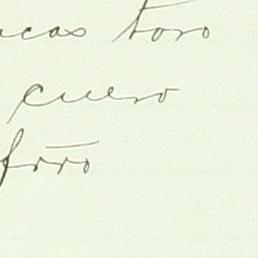 acas toro
cuero
forro